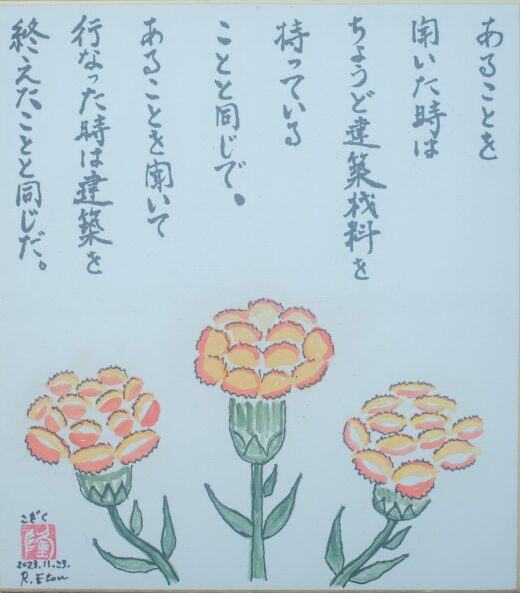 あることを
聞いた時は
ちょうど建築材料を
持っている
ことと同じで。
あることを聞いて
行なった時は建築を
終えたことと同じだ。
こぞく
2023.11.23.
R. Etou